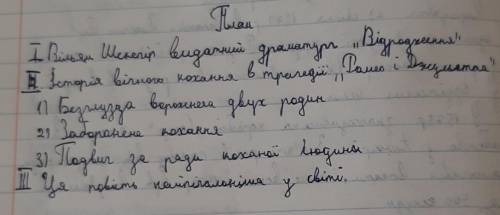 План
I Вільям Шекспір видатний драматург ,,Відродження"
II Історія вічного кохання в трагедії ,,Ромео і Джульєтта"
1) Безглузда ворожнеча двух родин
2) Заборонене кохання
3) Подвиг за ради коханої людини
III Ця повість найпечальніша у світі.